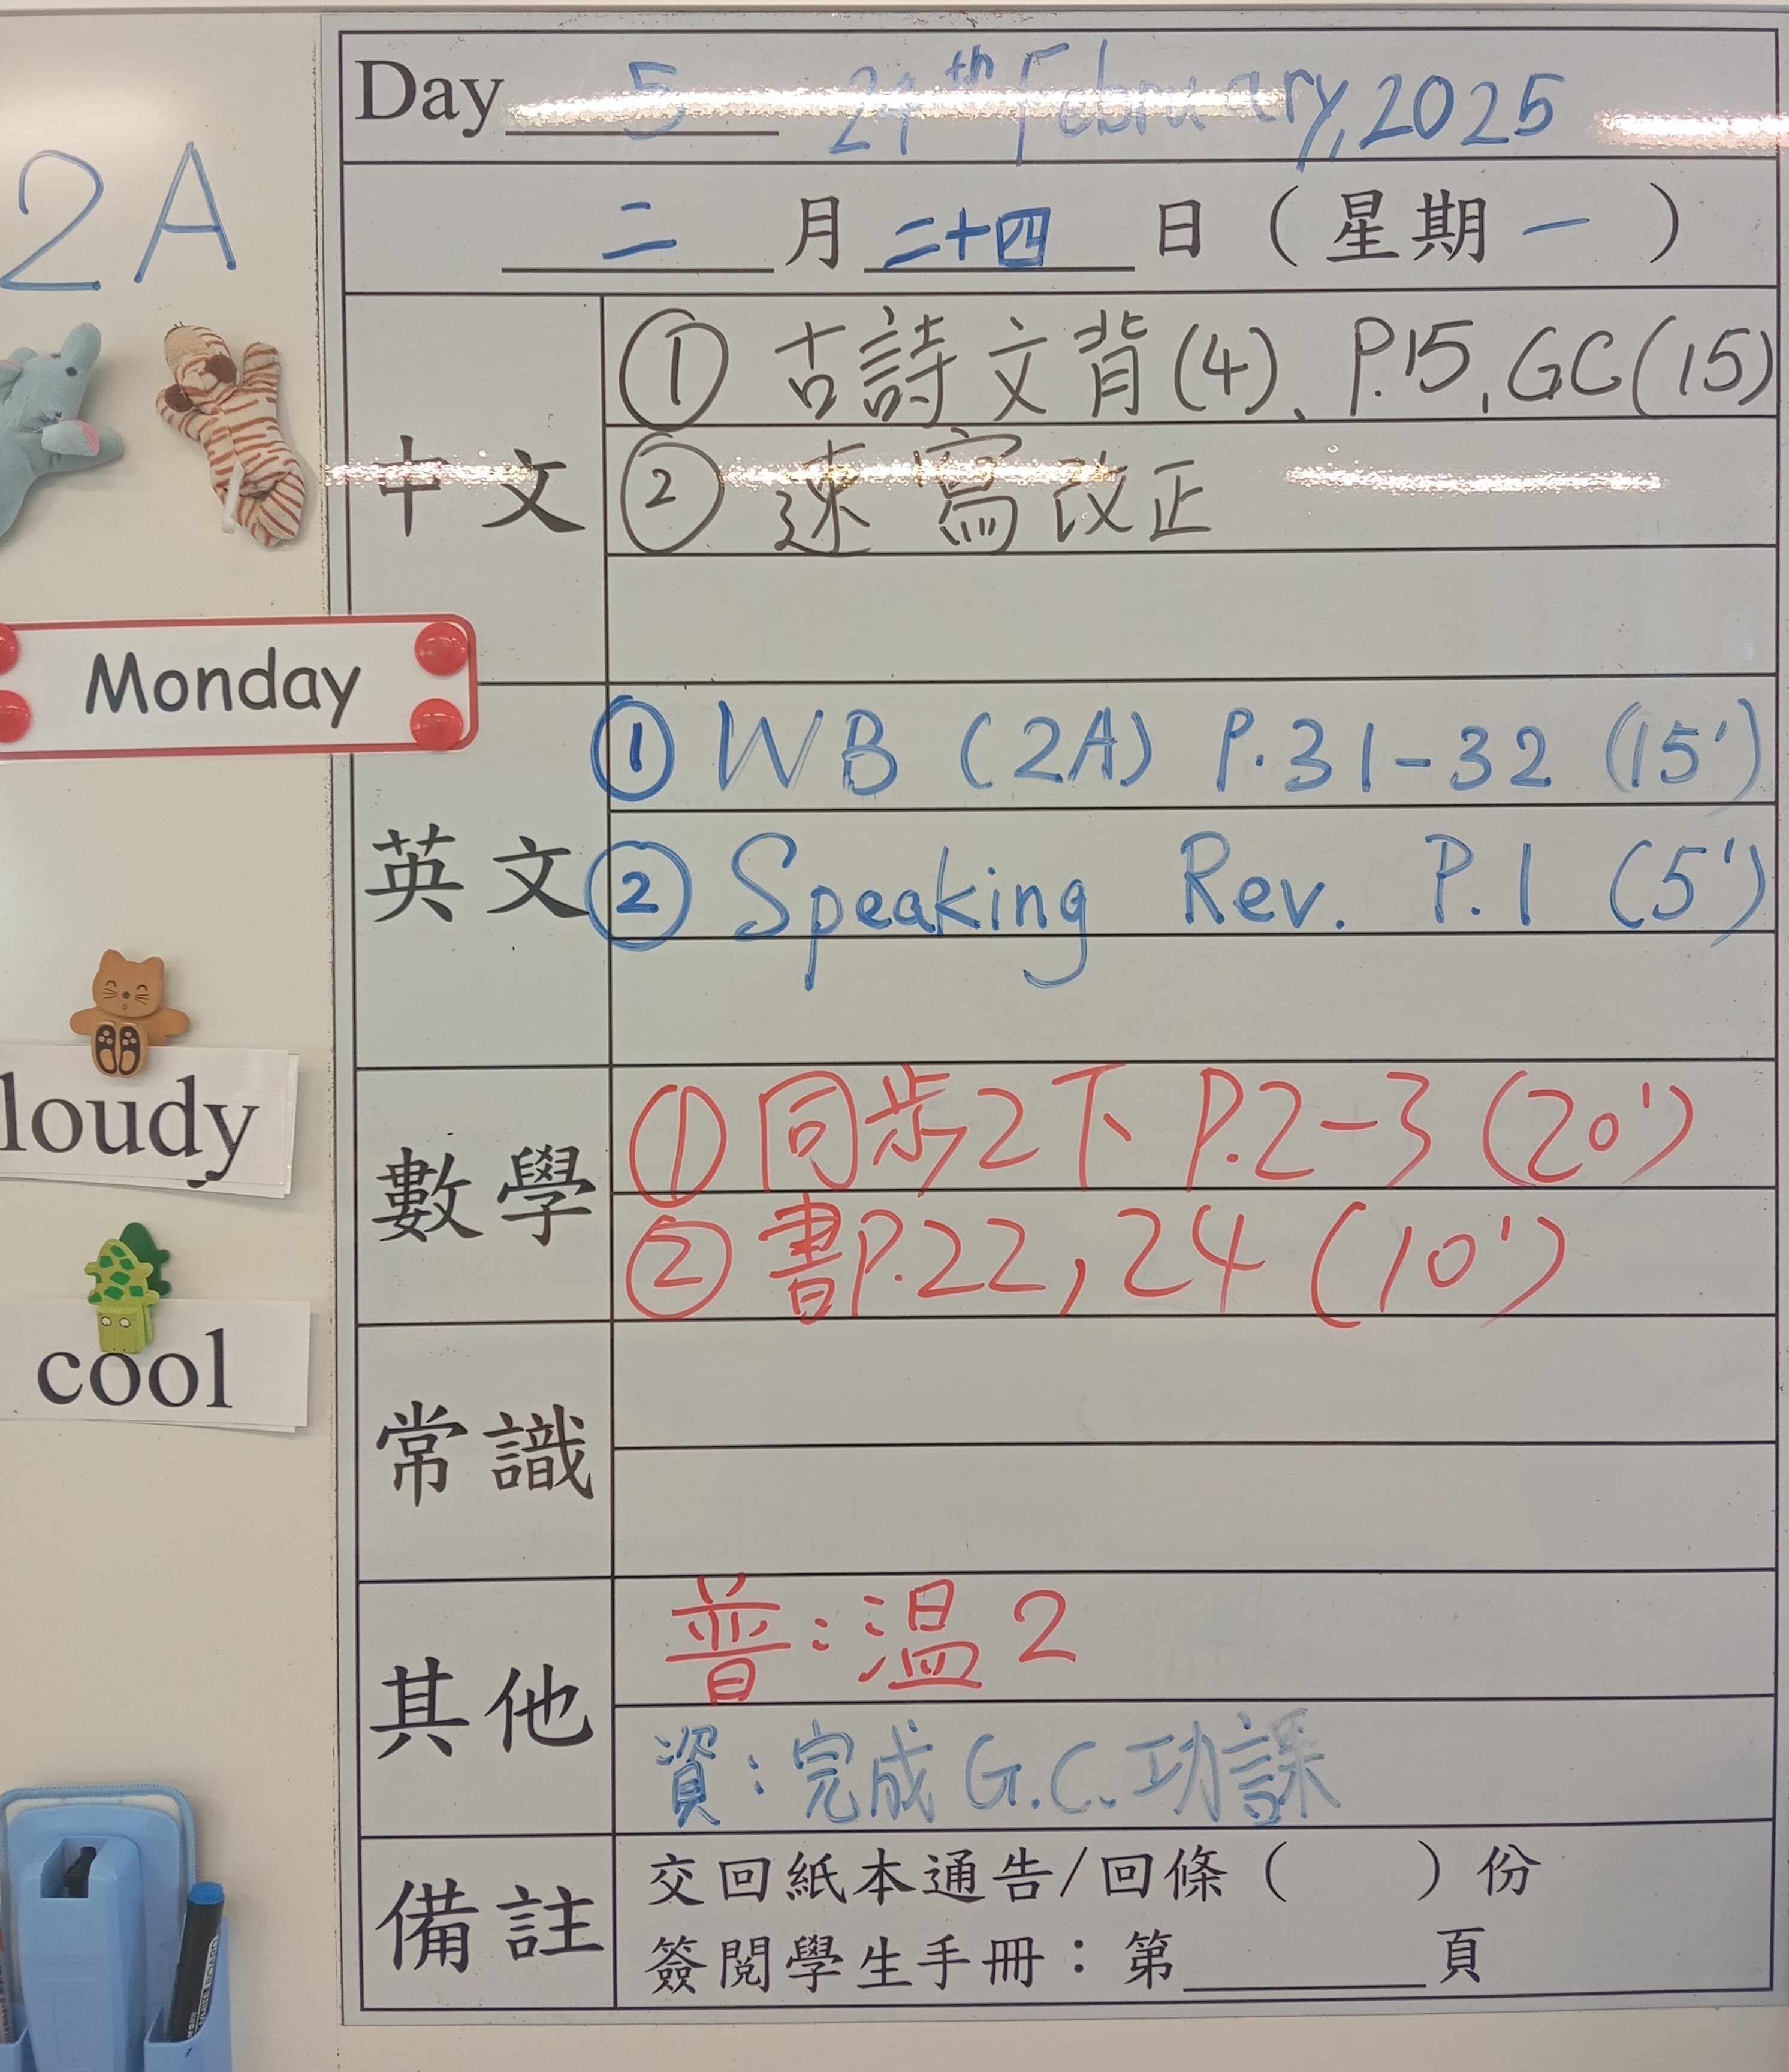 Day 5 24th February, 2025
2A
二 月 二十四 日 ( 星期 一 )
中文
① 古詩文背(4)、P.15, GC(15)
② 速寫改正
Monday
英文
① WB (2A) P.31-32 (15')
② Speaking Rev. P.1 (5')
loudy
數學
① 同步2下 P.2-3 (20')
② 書P.22, 24 (10')
cool
常識
其他
普:温2
資:完成G.C.功課
備註
交回紙本通告/回條( )份
簽閱學生手冊:第______頁